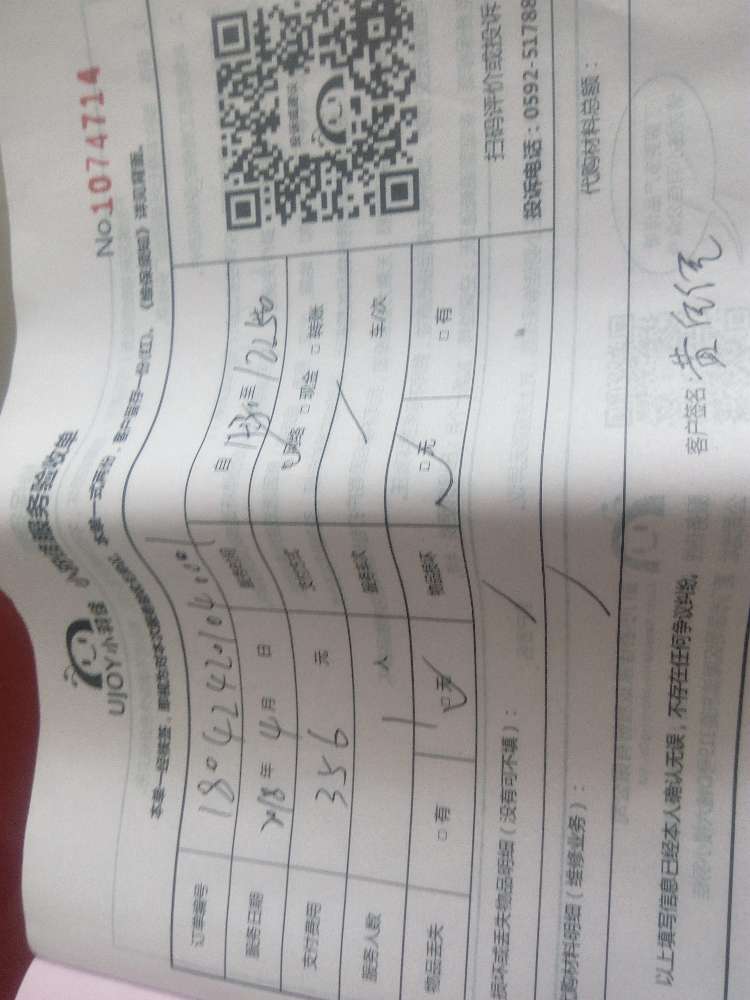 No.1074714
UJOY小羽佳
服务验收单
本单一式两份，客户留存一份(红)，《维保须知》详见背面。
订单编号 180424201040001
服务日期 2018年 4月 日
服务时间 自 至
支付费用 356 元
支付方式 网络 □现金 □转账
服务人数 1 人
服务车次 车/次
物品丢失 □有 □无
物品损坏 □无 □有
投诉或建议
扫码评价或投诉
投诉电话：0592-51788
损坏或丢失物品明细（没有可不填）：
购材料明细（维修业务）：
代购材料总额：
以上填写信息已经本人确认无误，不存在任何争议纠纷。
客户签名：黄